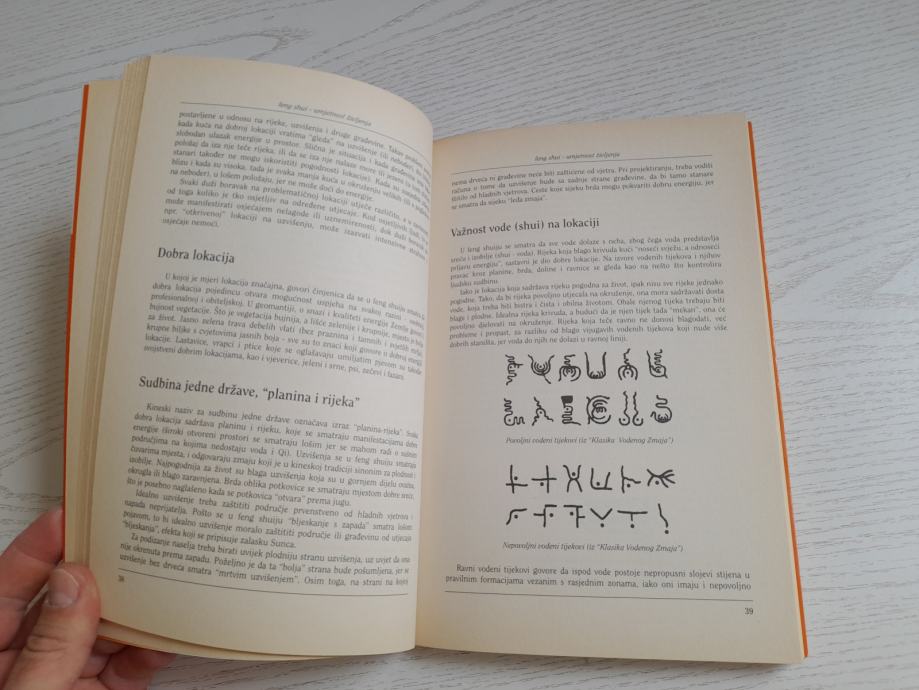 feng shui - umjetnost življenja
postavljene u odnosu na rijeke, uzvišenja i druge građevine. Takav problem
kada kuća na dobroj lokaciji vratima "gleda" na uzvišenje (ili neboder),
slobodan ulazak energije u prostor. Slična je situacija i kada građevina
položaj da iza nje teče rijeka, ili da se iza nje nalaze more ili jezero
stanari također ne mogu iskoristiti pogodnosti lokacije). Kada su zgrade
blizu i kada su visoke, tada je svaka manja kuća u okruženju velikih
na neboder), u lošem položaju, jer ne može doći do energije.
Svaki duži boravak na problematičnoj lokaciji utječe različito,
od toga koliko je tko osjetljiv na određene utjecaje. Kod osjetljivijih
može manifestirati osjećajem nelagode ili uznemirenosti, dok duži boravak
npr. "otkrivenoj" lokaciji na uzvišenju, može izazvati intenzivne
osjećaje nemoći.
Dobra lokacija
U kojoj je mjeri lokacija značajna, govori činjenica da se u feng shuiju smatra da
dobra lokacija pojedincu otvara mogućnost uspjeha na svakoj razini
profesionalnoj i obiteljskoj. U geomantiji, o snazi i kvaliteti energije Zemlje govori
bujnost vegetacije. Što je vegetacija bujnija, a lišće zelenije i krupnije, mjesto je bolje
za život. Jasno zelena trava debelih vlati (bez praznina i tamnih i svjetlih mrlja),
krupne biljke s cvjetovima jasnih boja - sve su to znaci koji govore o dobroj energiji
lokacije. Lastavice, vrapci i ptice koje se oglašavaju umiljatim pjevom su također
svojstveni dobrim lokacijama, kao i vjeverice, jeleni i srne, psi, zečevi i fazani.
Sudbina jedne države, "planina i rijeka"
Kineski naziv za sudbinu jedne države označava izraz "planina-rijeka". Svaka
dobra lokacija sadržava planinu i rijeku, koje se smatraju manifestacijama dobre
energije (široki otvoreni prostori se smatraju lošim jer se mahom radi o sušnim
područjima na kojima nedostaju voda i Qi). Uzvišenja se u feng shuiju smatraju
čuvarima mjesta, i odgovaraju zmaju koji je u kineskoj tradiciji sinonim za plodnost i
izobilje. Najpogodnija za život su blaga uzvišenja koja su u gornjem dijelu osuta,
okrugla ili blago zaravnjena. Brda oblika potkovice se smatraju mjestom dobre sreće,
što je posebno naglašeno kada se potkovica "otvara" prema jugu.
Idealno uzvišenje treba zaštititi područje prvenstveno od hladnih vjetrova i
napada neprijatelja. Pošto se u feng shuiju "bljeskanje s zapada" smatra lošom
pojavom, to bi idealno uzvišenje moralo zaštititi područje ili građevinu od utjecaja
"bljeskanja", efekta koji se pripisuje zalasku Sunca.
Za podizanje naselja treba birati uvijek plodniju stranu uzvišenja, uz uvjet da ona
nije okrenuta prema zapadu. Poželjno je da ta "bolja" strana bude pošumljena, jer se
uzvišenje bez drveća smatra "mrtvim uzvišenjem". Osim toga, na strani na kojoj
38
feng shui - umjetnost življenja
nema drveća ni građevine neće biti zaštićene od vjetra. Pri projektiranju, treba voditi
računa o tome da uzvišenje bude sa zadnje strane građevine, da bi ta tamo stanare
štitilo od hladnih vjetrova. Ceste koje sijeku brda mogu pokvariti dobru energiju, jer
se smatra da sijeku "leđa zmaja".
Važnost vode (shui) na lokaciji
U feng shuiju se smatra da sve vode dolaze s neba, zbog čega voda predstavlja
sreću i izobilje (shui - voda). Rijeka koja blago krivuda kući "noseći svježu, a odnoseći
prljavu energiju", sastavni je dio dobre lokacije. Na izvore vodenih tijekova i njihov
pravac kroz planine, brda, doline i ravnice se gleda kao na nešto što kontrolira
ljudsku sudbinu.
Iako je lokacija koja sadržava rijeku pogodna za život, ipak nisu sve rijeke jednako
pogodne. Tako, da bi rijeka povoljno utjecala na okruženje, ona mora sadržavati dosta
vode, koja treba biti bistra i čista i obilna životom. Obale njenog tijeka trebaju biti
blage i plodne. Idealna rijeka krivuda, a budući da je njen tijek tada "mekan", ona će
povoljno djelovati na okruženje. Rijeka koja teče ravno ne donosi blagodati, već
probleme i propast, za razliku od blago vijugavih vodenih tijekova koji nude više
dobrih staništa, jer voda do njih ne dolazi u ravnoj liniji.
Povoljni vodeni tijekovi (iz "Klasika Vodenog Zmaja")
Nepovoljni vodeni tijekovi (iz "Klasika Vodenog Zmaja")
Ravni vodeni tijekovi govore da ispod vode postoje nepropusni slojevi stijena u
pravilnim formacijama vezanim s rasjednim zonama, iako oni imaju i nepovoljno
39